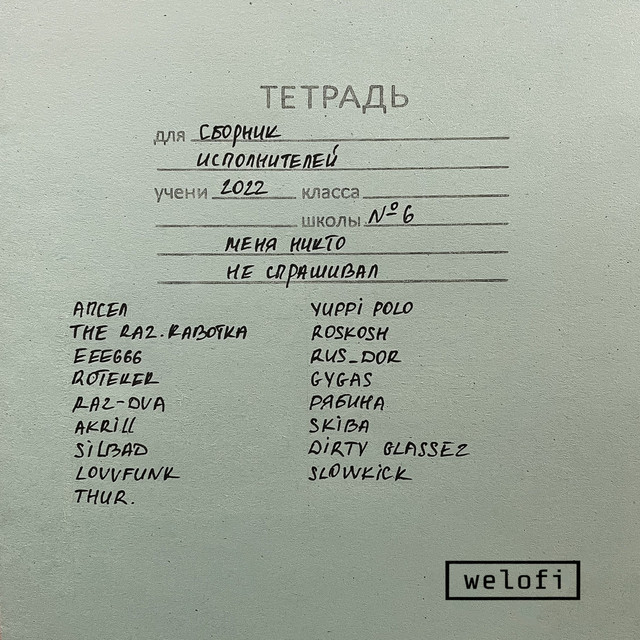 ТЕТРАДЬ
для СБОРНИК
ИСПОЛНИТЕЛЕЙ
учени 2022 класса
школы №6
МЕНЯ НИКТО
НЕ СПРАШИВАЛ
АПСЕЛ
THE RAZ.RABOTKA
EEE666
ROTEKER
RAZ-DVA
AKRILL
SILBAD
LOVVFUNK
THUR.
YUPPI POLO
ROSKOSH
RUS_DOR
GYGAS
РЯБИНА
SKIBA
DIRTY GLASSEZ
SLOWKICK
welofi